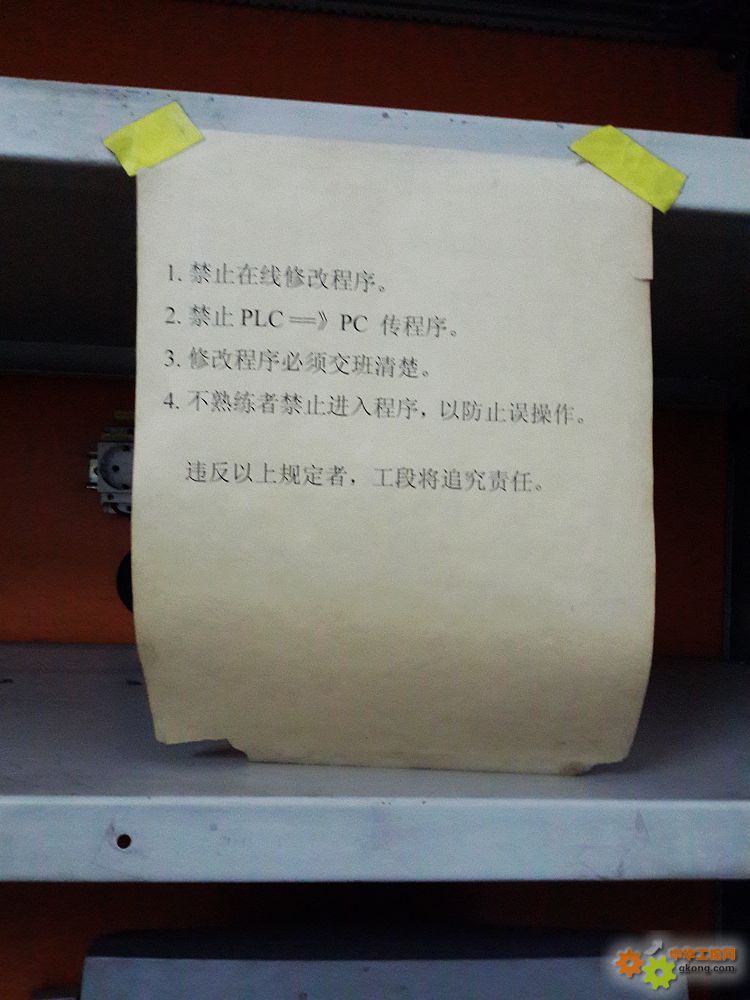 1. 禁止在线修改程序。
2. 禁止 PLC ==》 PC 传程序。
3. 修改程序必须交班清楚。
4. 不熟练者禁止进入程序，以防止误操作。
违反以上规定者，工段将追究责任。
中华工控网
gkong.com